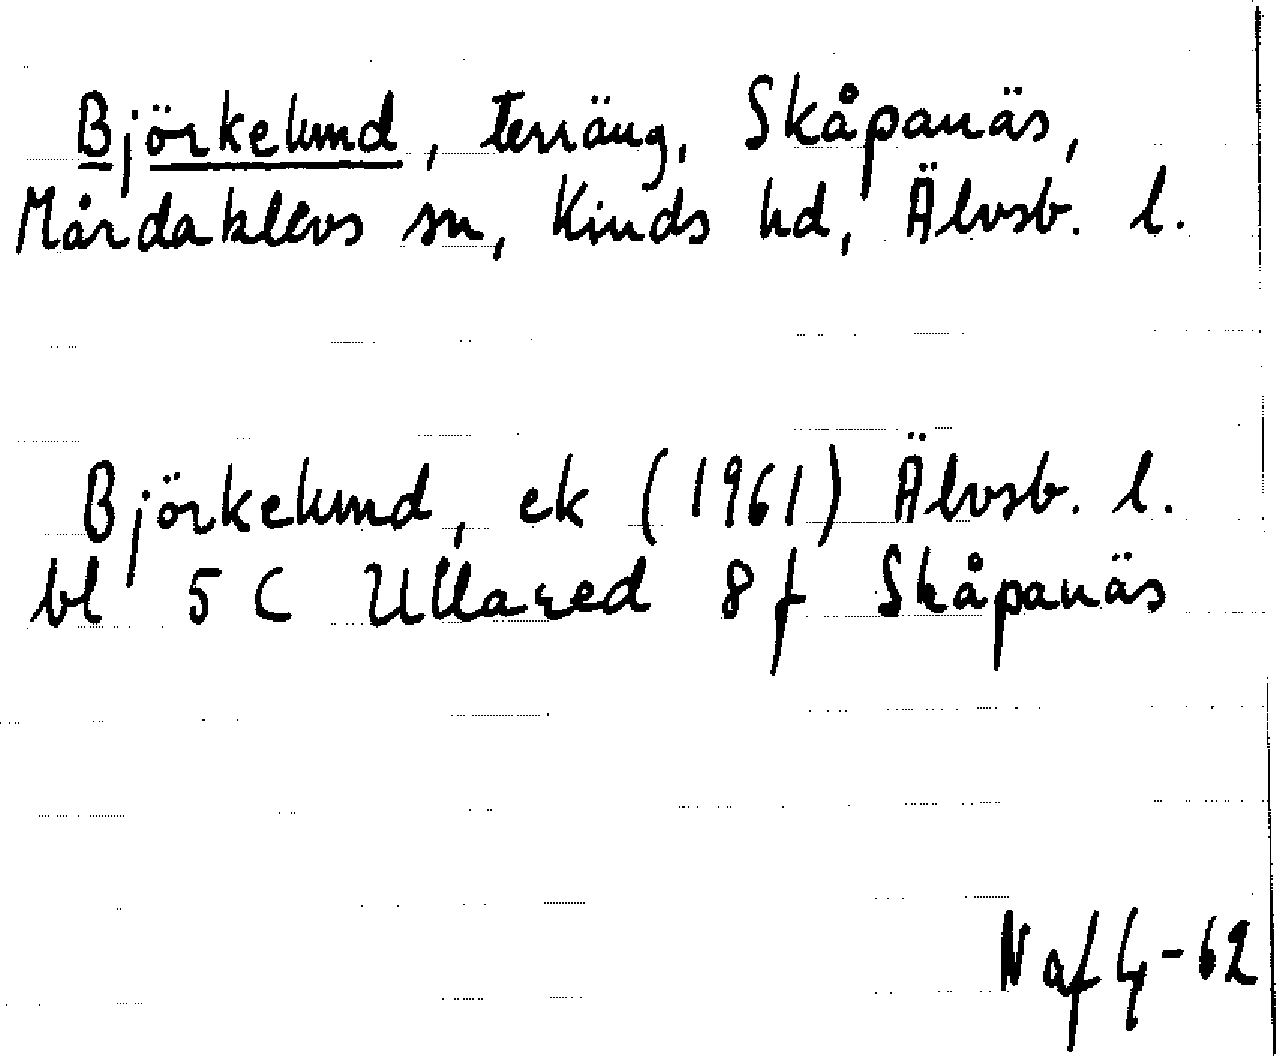 Björkelund, terräng, Skåpanäs,
Mårdaklevs sn, Kinds hd, Älvsb. l.
Björkelund, ek (1961) Älvsb. l.
bl 5 C Ullared 8 f Skåpanäs
N af G-62